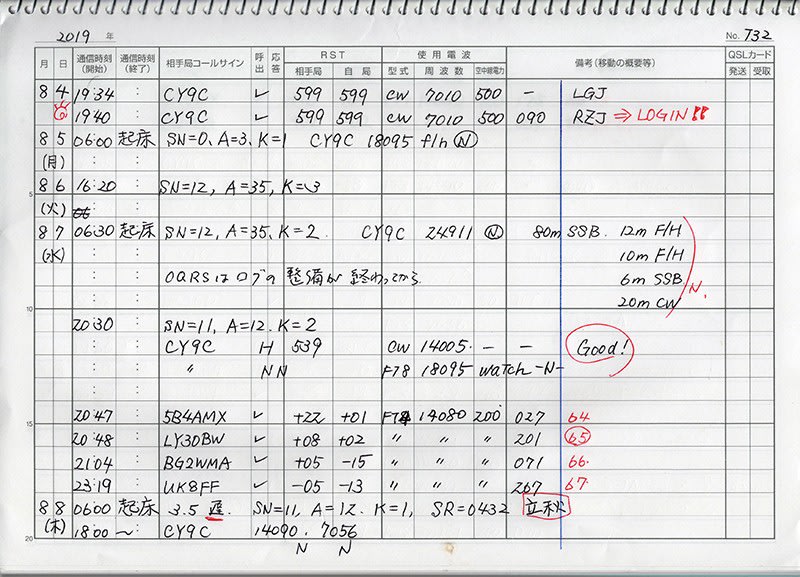 2019 年 No. 732
月 日 通信時刻(開始) 通信時刻(終了) 相手局コールサイン 呼出 応答 RST 相手局 自局 使用電波 型式 周波数 空中線電力 備考(移動の概要等) QSLカード 発送 受取
8 4 19:34 : CY9C ✓ 599 599 CW 7010 500 — LGJ
19:40 : CY9C ✓ 599 599 CW 7010 500 090 RZJ ⇒ LOGIN!!
8 5 06:00 起床 SN=0, A=3, K=1 CY9C 18095 f/h Ⓝ
(月) : :
5 8 6 16:20 : SN=12, A=35, K=3
(火) : :
8 7 06:30 起床 SN=12, A=35, K=2. CY9C 24911 Ⓝ 80m SSB. 12m F/H
(水) : : 10m F/H
: : OQRSはログの整備が終わってから 6m SSB N.
10 : : 20m CW
20:30 SN=11, A=12. K=2
: : CY9C H 539 CW 14005. — — Good!
: : 〃 NN FT8 18095 watch -N-
: :
15 20:47 : 5B4AMX ✓ +22 +01 FT8 14080 200 027 64
20:48 : LY30BW ✓ +08 +02 〃 〃 〃 201 65
21:04 : BG2WMA ✓ +05 -15 〃 〃 〃 071 66.
23:19 : UK8FF ✓ -05 -13 〃 〃 〃 267 67.
8 8 06:00 起床 3.5 SN=11, A=12. K=1, SR=0432 立秋
20 (木) 18:00 〜 CY9C 14090. 7056
N N